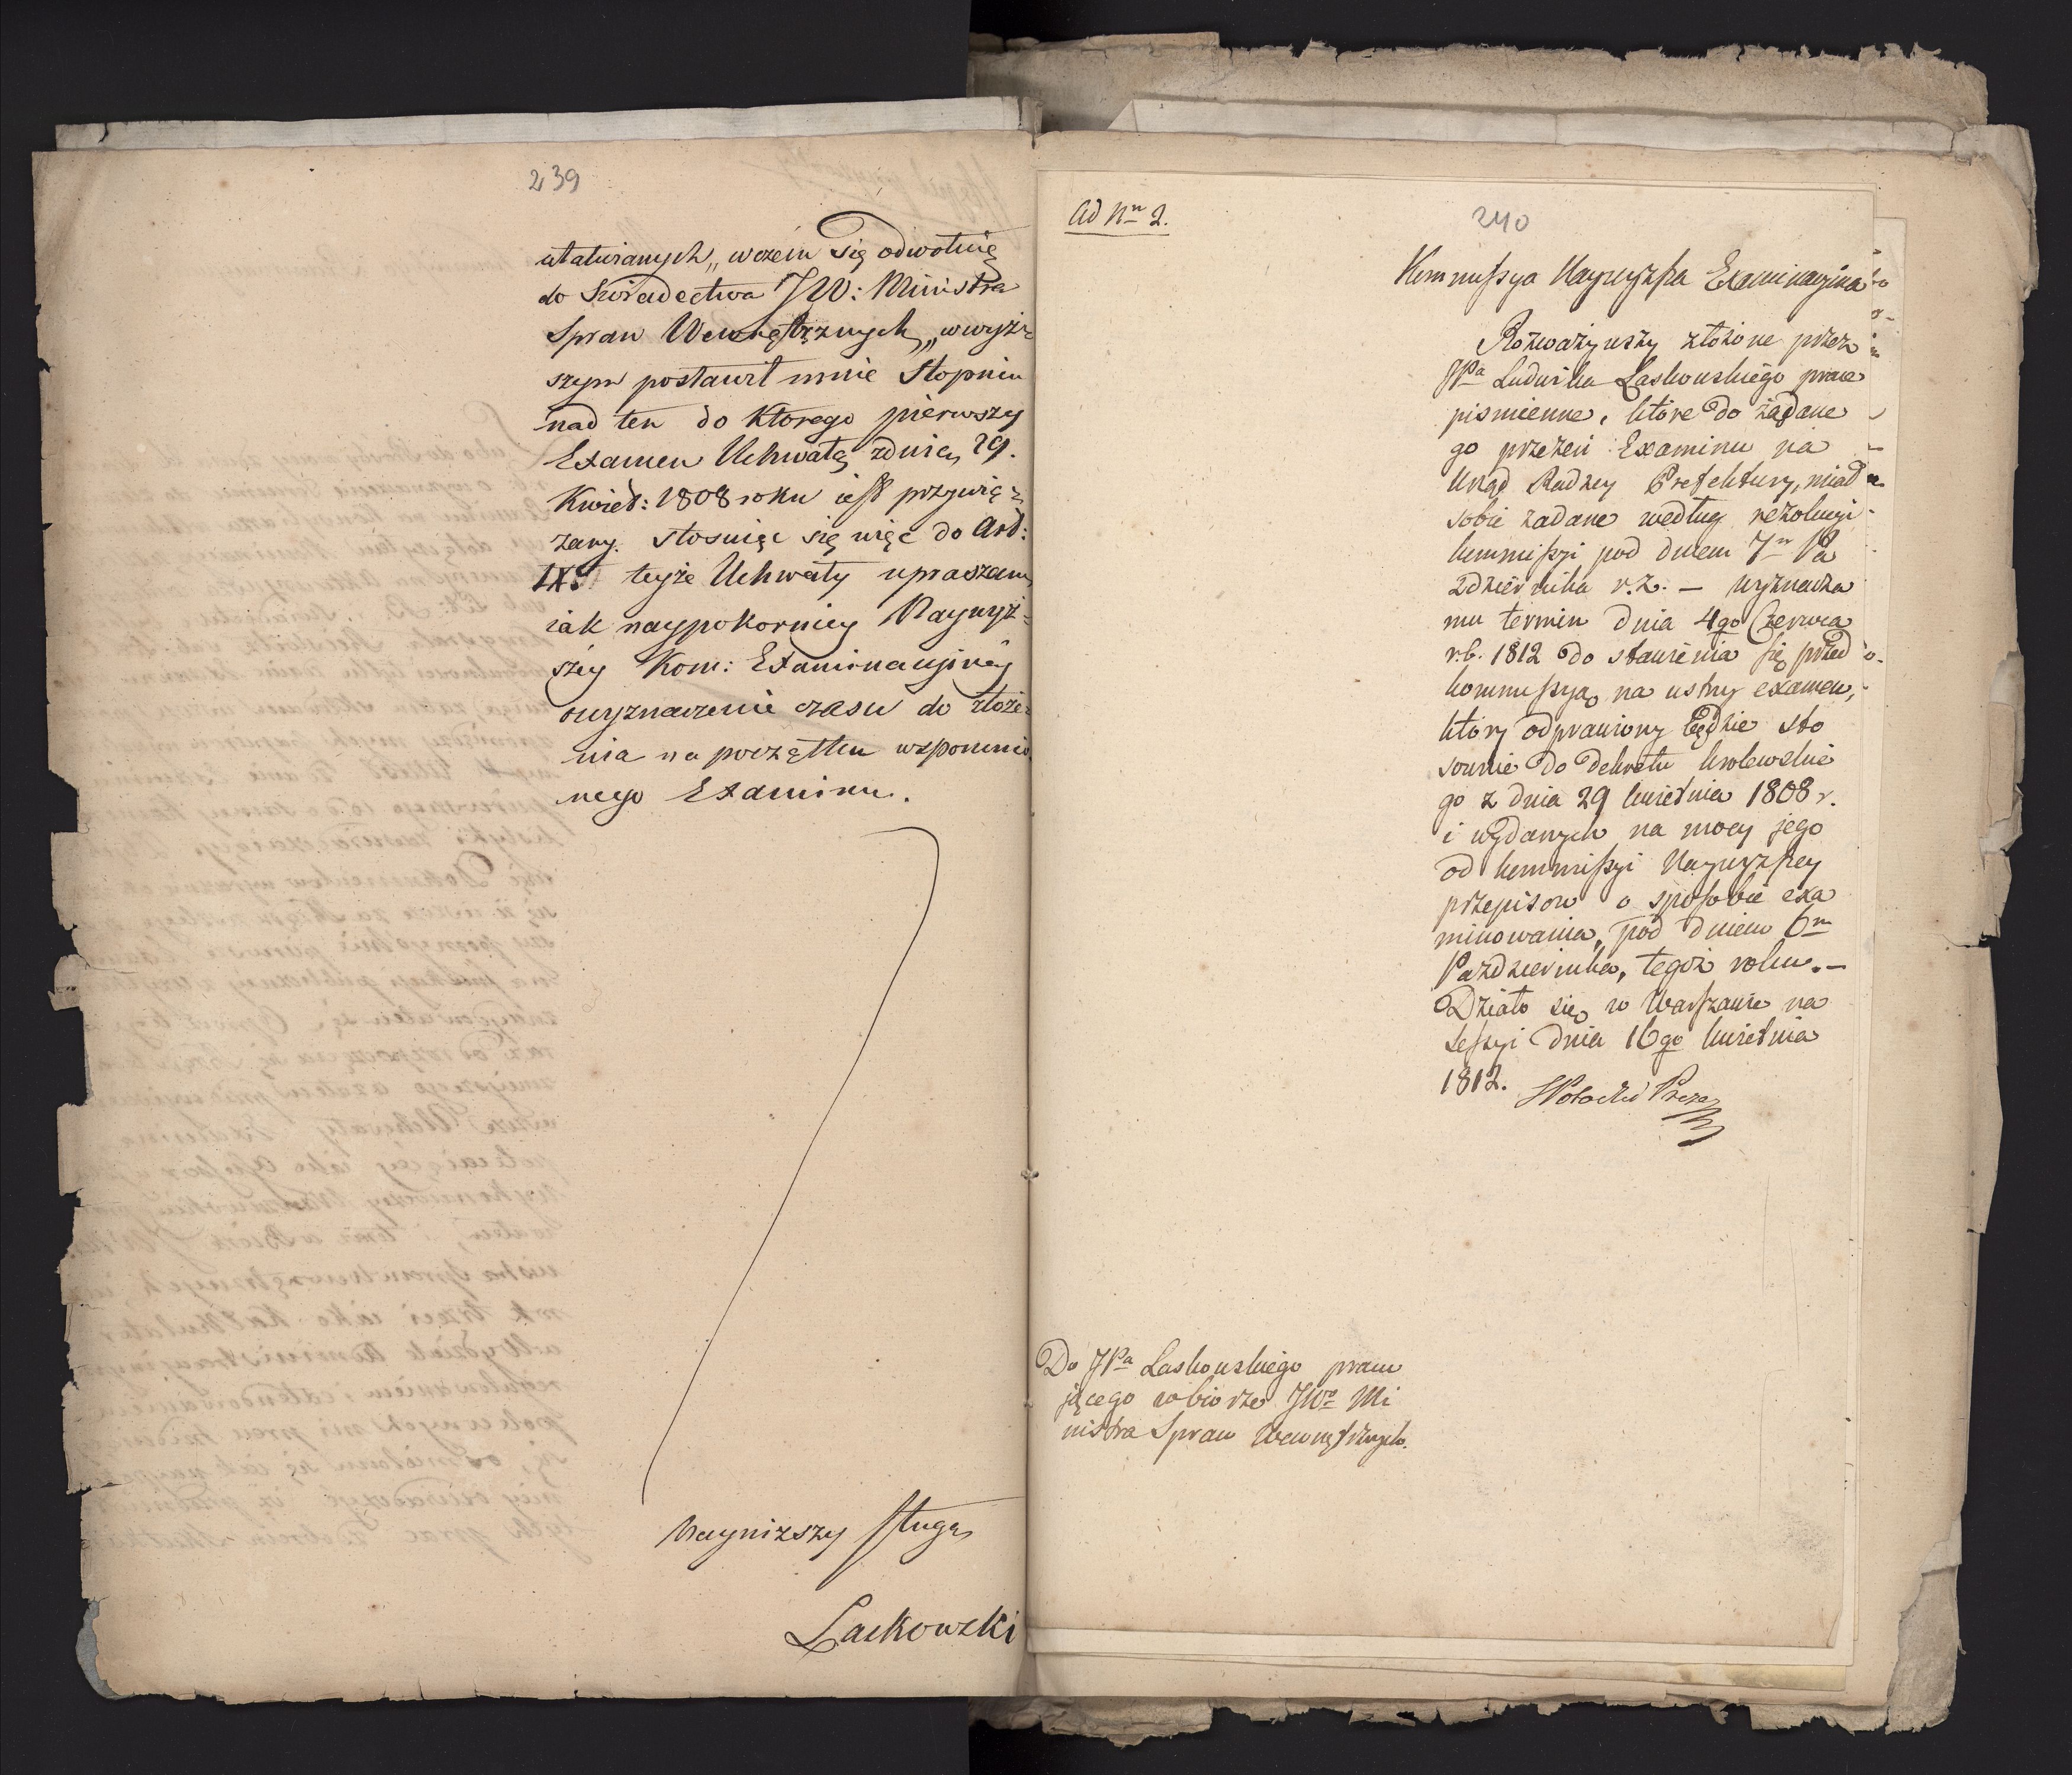 239
ułatwianych „ wczém się odwołuię
do Swiadectwa JW: Ministra
Spraw Wewnętrznych „ wwyż-
szym postawił mnie Stopniu
nad ten do ktorego pierwszy
Examen Uchwałą zdnia 29.
Kwiet: 1808 roku iest przywią-
zany. Stosuiąc się więc do Art:
IX. teyże Uchwały upraszam
iak naypokorniey Naywyż-
szey Kom: Examinacyiney
owyznaczenie czasu do złoże-
nia na początku wspomnio
nego Examinu.
Nayniższy Sługa
Laskowski
Ad Nrn 2.
240
Kommissya Naywyższa Examinacyina
Rozważywszy złożone przez
JPa Ludwika Laskowskiego prace
pismienne, które do żądane
go przezeń Examinu na
Urząd Radzcy Prefektury, miał
sobie zadane według rezolucyi
kommissyi pod dniem 7m Pa
zdziernika r.z. — wyznacza
mu termin dnia 4go Czerwca
r.b. 1812 do stawienia się przed
kommissyą na ustny examen,
który odprawiony będzie sto
sownie do Dekretu krolewskie
go z dnia 29 kwietnia 1808 r.
i wydanych na mocy jego
od kommissyi Naywyższey
przepisow o sposobie exa
minowania, pod dniem 6m
Pazdziernika, tegoż roku. —
Działo się w Warszawie na
Sessyi dnia 16go kwietnia
1812.
SPotocki Prezes
Do JPa Laskowskiego pracu
jącego wbiórze JWo Mi
nistra Spraw Wewnętrznych.